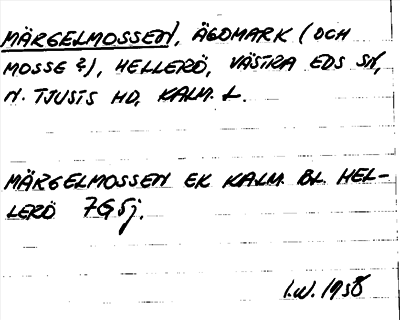 MÄRGELMOSSEN, ÄGOMARK (OCH
MOSSE?), HELLERÖ, VÄSTRA EDS SN,
N. TJUSTS HD, KALM. L.
MÄRGELMOSSEN EK KALM. BL. HEL-
LERÖ 7G5j.
I.W. 1958